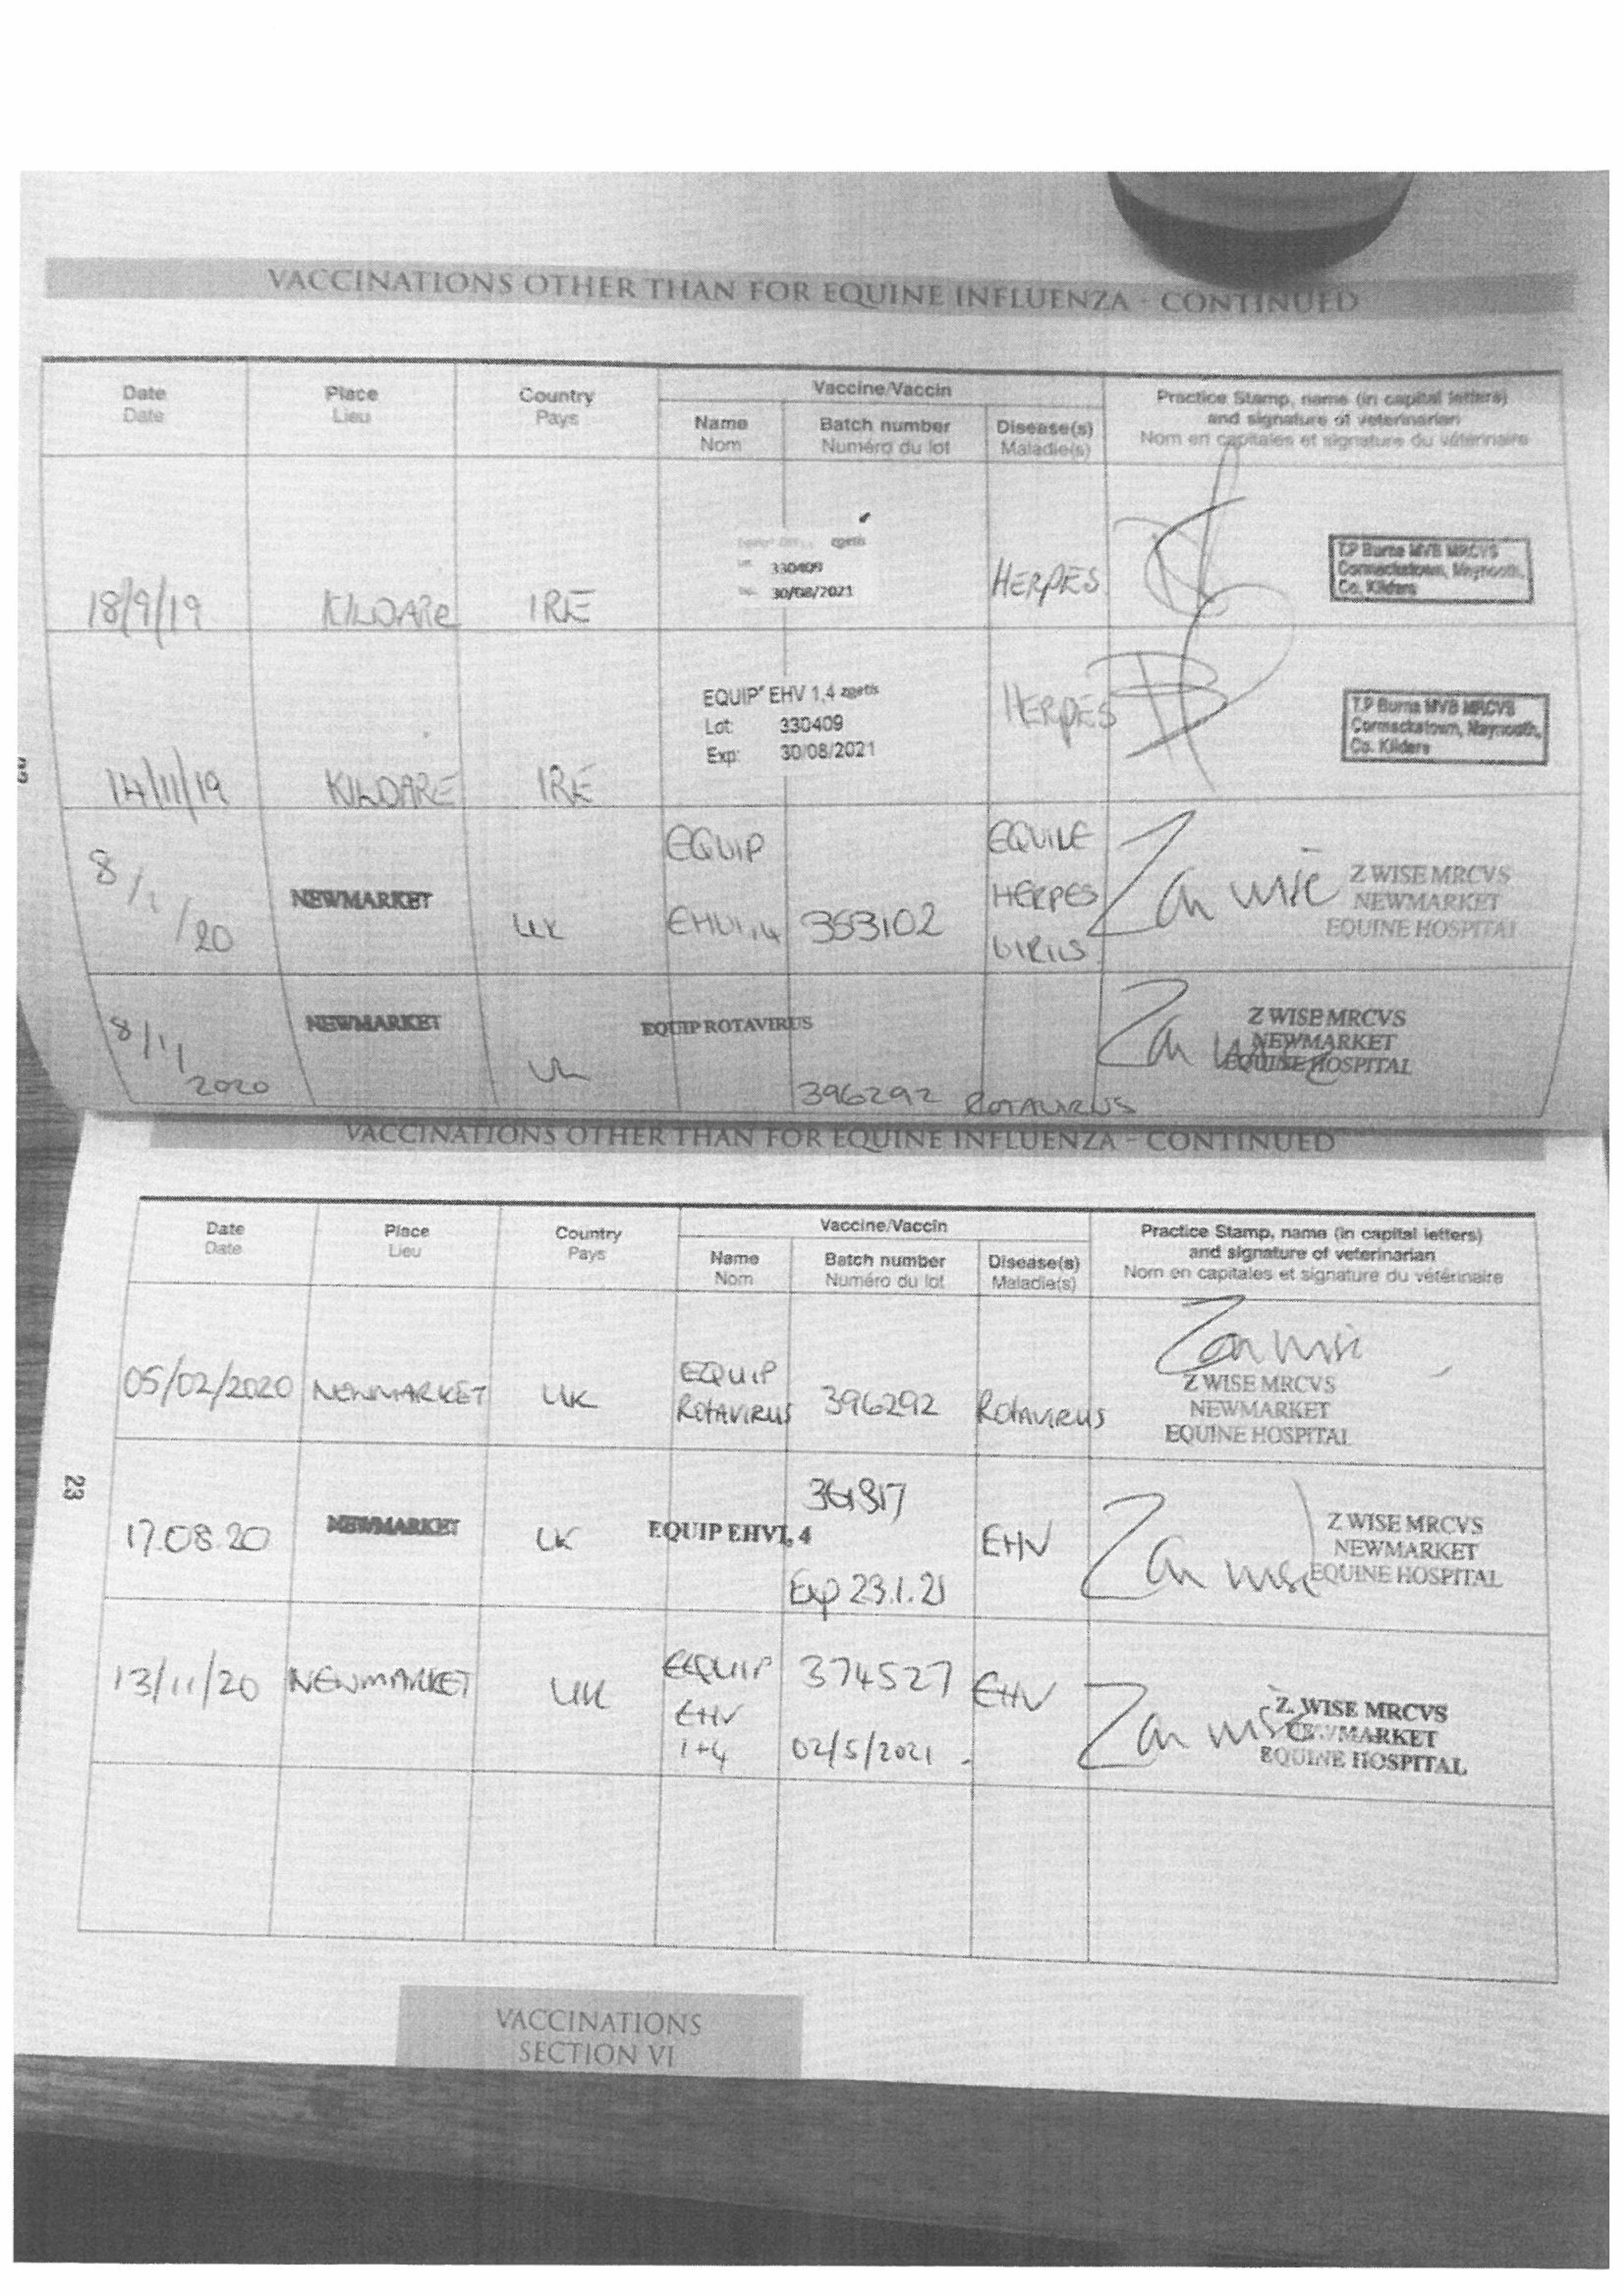 VACCINATIONS OTHER THAN FOR EQUINE INFLUENZA - CONTINUED
Date Place Country Vaccine/Vaccin Practice Stamp, name (in capital letters)
Date Lieu Pays and signature of veterinarian
Name Batch number Disease(s)
Nom Numéro du lot Maladie(s) Nom en capitales et signature du vétérinaire
zoetis
330409
30/08/2021
18/9/19 KILDARE IRE HERPES
T.P Burns MVB MRCVS
Cormackstown, Maynooth,
Co. Kildare
EQUIP EHV 1,4 zoetis
Lot: 330409
Exp: 30/08/2021
14/11/19 KILDARE IRE HERPES
T.P Burns MVB MRCVS
Cormackstown, Maynooth,
Co. Kildare
8/1/20 NEWMARKET UK
EQUIP
EHV1,4 353102
EQUINE
HERPES
VIRUS
Zan Wise
Z WISE MRCVS
NEWMARKET
EQUINE HOSPITAL
8/1/2020 NEWMARKET UK EQUIP ROTAVIRUS
396292 ROTAVIRUS
Zan Wise
Z WISE MRCVS
NEWMARKET
EQUINE HOSPITAL
VACCINATIONS OTHER THAN FOR EQUINE INFLUENZA - CONTINUED
Date Place Country Vaccine/Vaccin Practice Stamp, name (in capital letters)
Date Lieu Pays and signature of veterinarian
Name Batch number Disease(s)
Nom Numéro du lot Maladie(s) Nom en capitales et signature du vétérinaire
05/02/2020 NEWMARKET UK
EQUIP
ROTAVIRUS 396292 ROTAVIRUS
Zan Wise
Z WISE MRCVS
NEWMARKET
EQUINE HOSPITAL
23
17.08.20 NEWMARKET UK EQUIP EHV1, 4
361817
Exp 23.1.21
EHV
Zan Wise
Z WISE MRCVS
NEWMARKET
EQUINE HOSPITAL
13/11/20 NEWMARKET UK
EQUIP
EHV
1+4
374527
02/5/2021
EHV
Zan Wise
Z. WISE MRCVS
NEWMARKET
EQUINE HOSPITAL
VACCINATIONS
SECTION VI